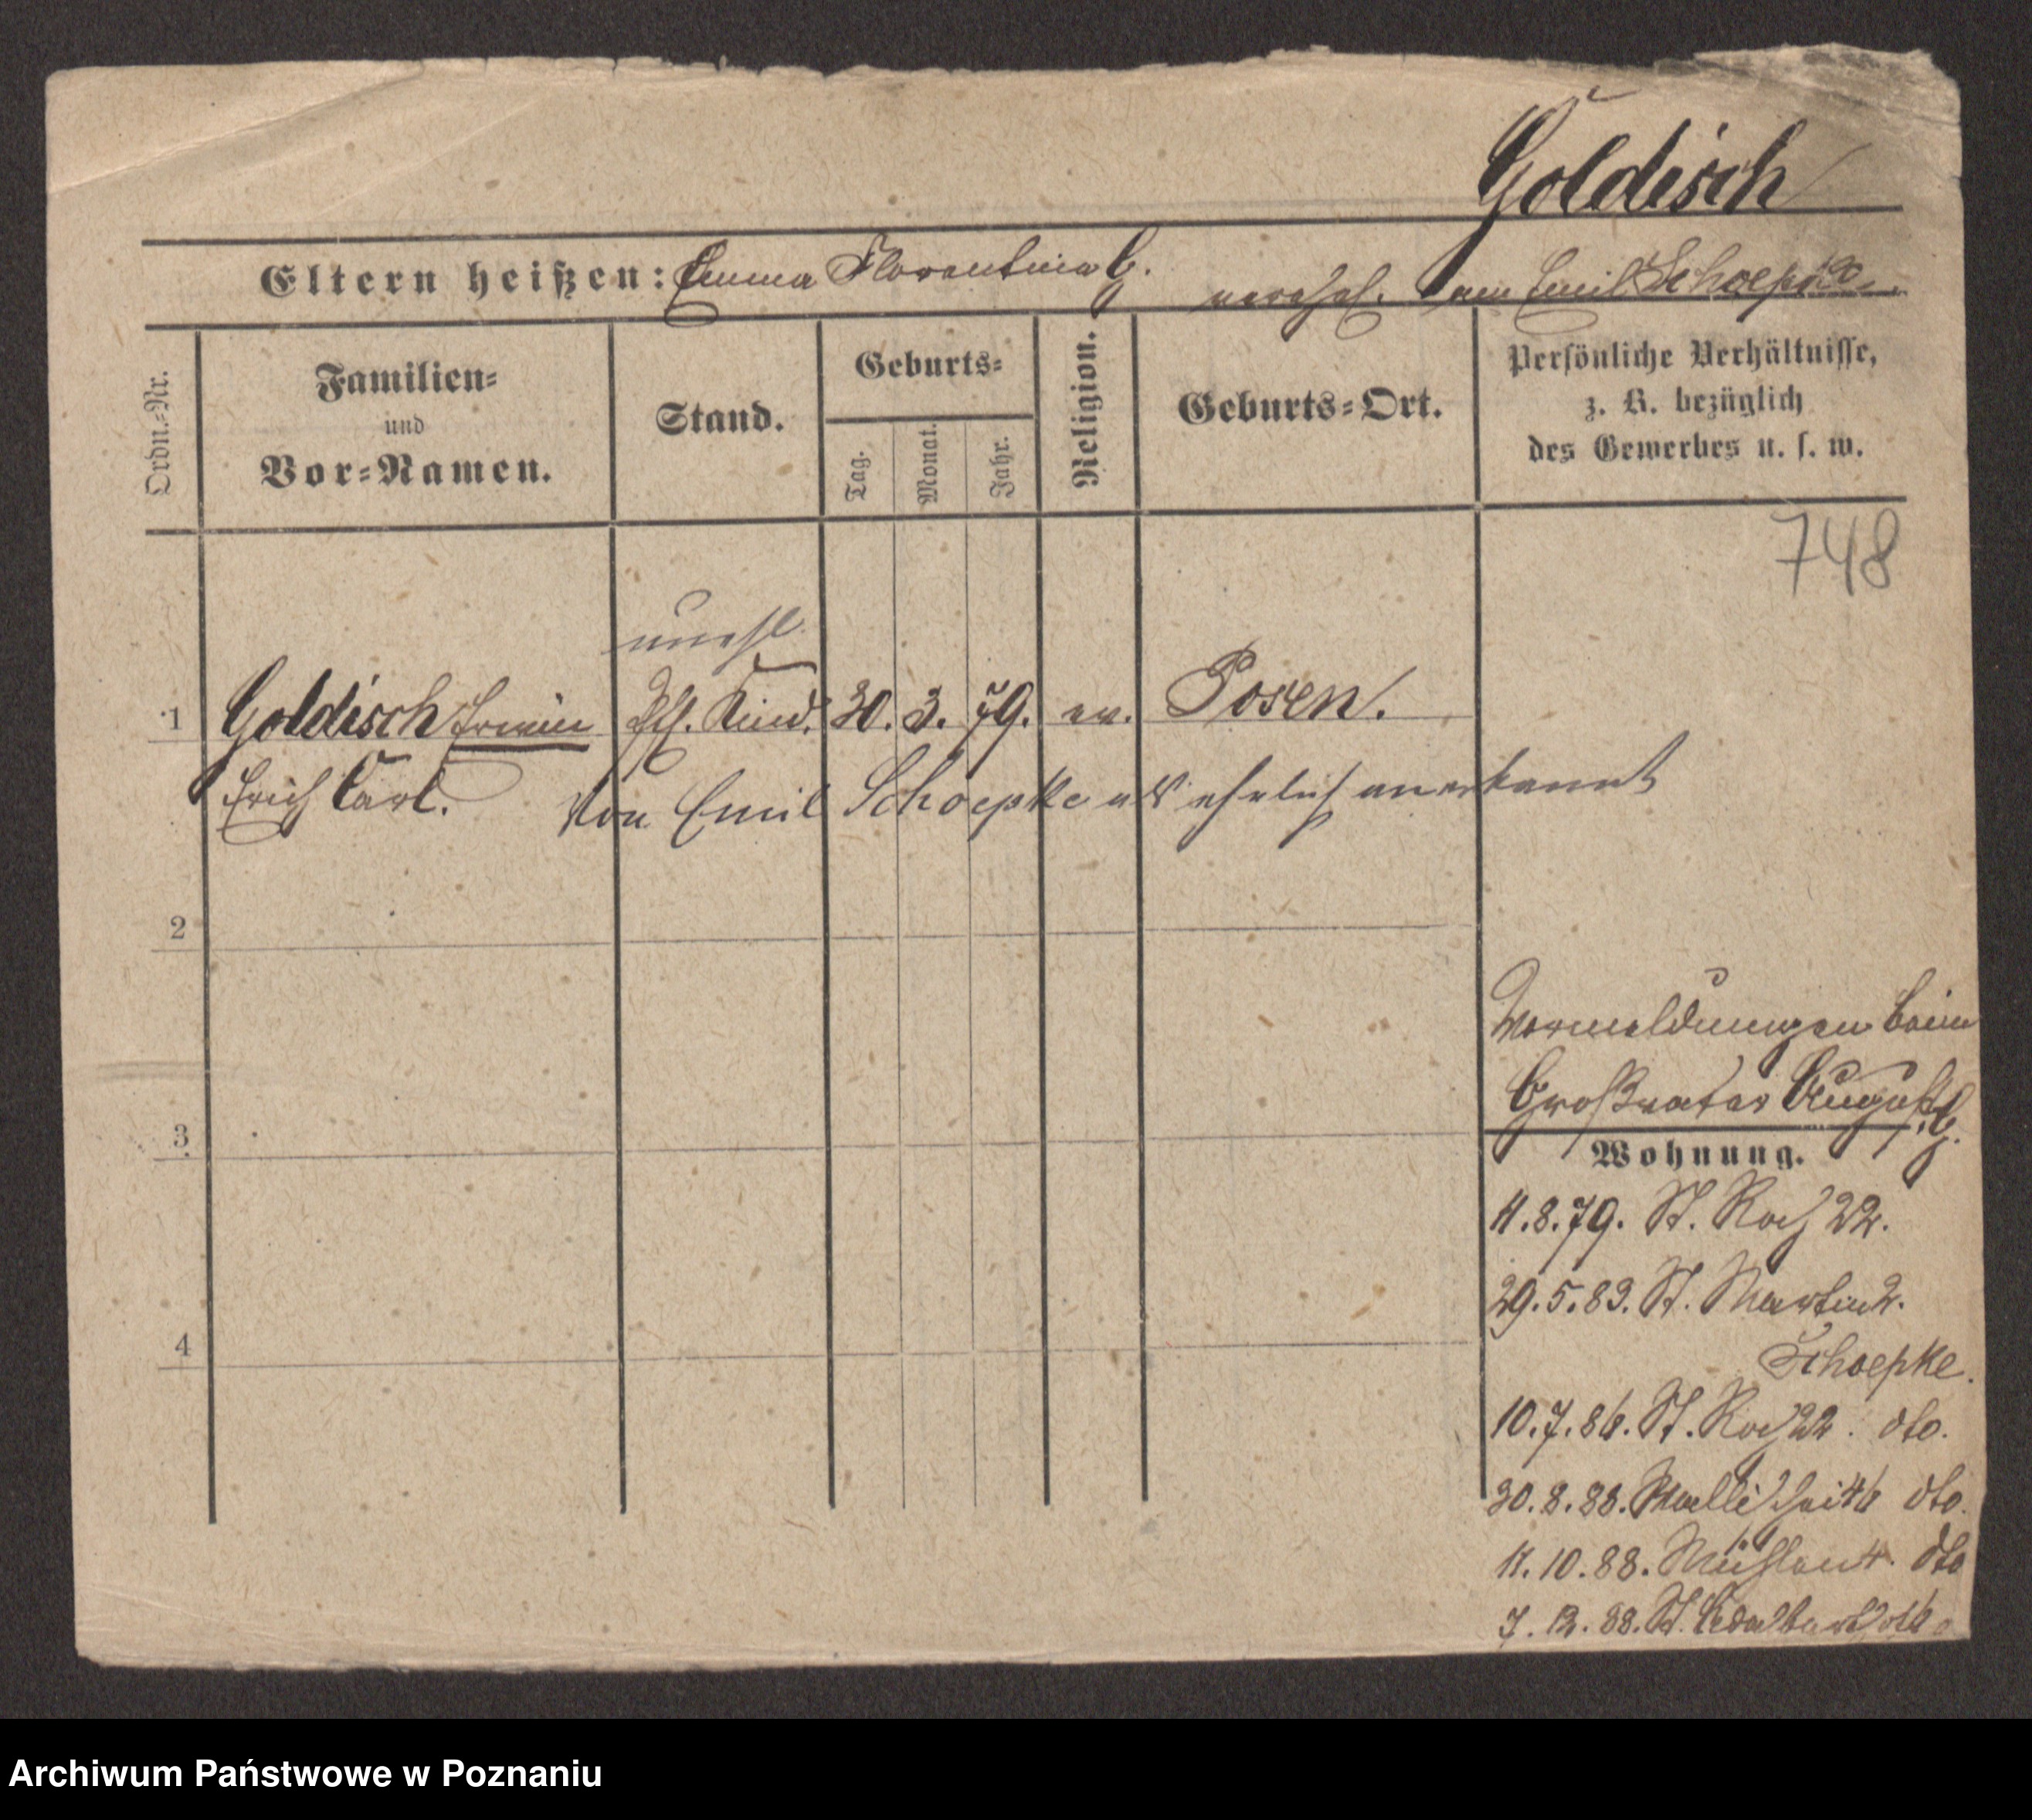 Goldisch
Eltern heißen: Emma Florentina G. verehel. am Emil Schoepke.
Ordn.-Nr.
Familien-
und
Vor-Namen.
Stand.
Geburts-
Tag.
Monat.
Jahr.
Religion.
Geburts-Ort.
Persönliche Verhältnisse,
z. B. bezüglich
des Gewerbes u. s. w.
748
unehl.
1 Goldisch Erwin Kind. 30. 3. 79. ev. Posen.
Erich Carl. Von Emil Schoepke als ehelich anerkannt
2
3
4
Vormeldungen beim
Großvater August G.
Wohnung.
11.8.79. St. Roch 22.
29.5.83. St. Martin 2.
Schoepke.
10.7.86. St. Roch 22. dto.
30.8.88. Wallischei dto.
11.10.88. Mühlen 4. dto
7.12.88. St. Adalbert
Archiwum Państwowe w Poznaniu